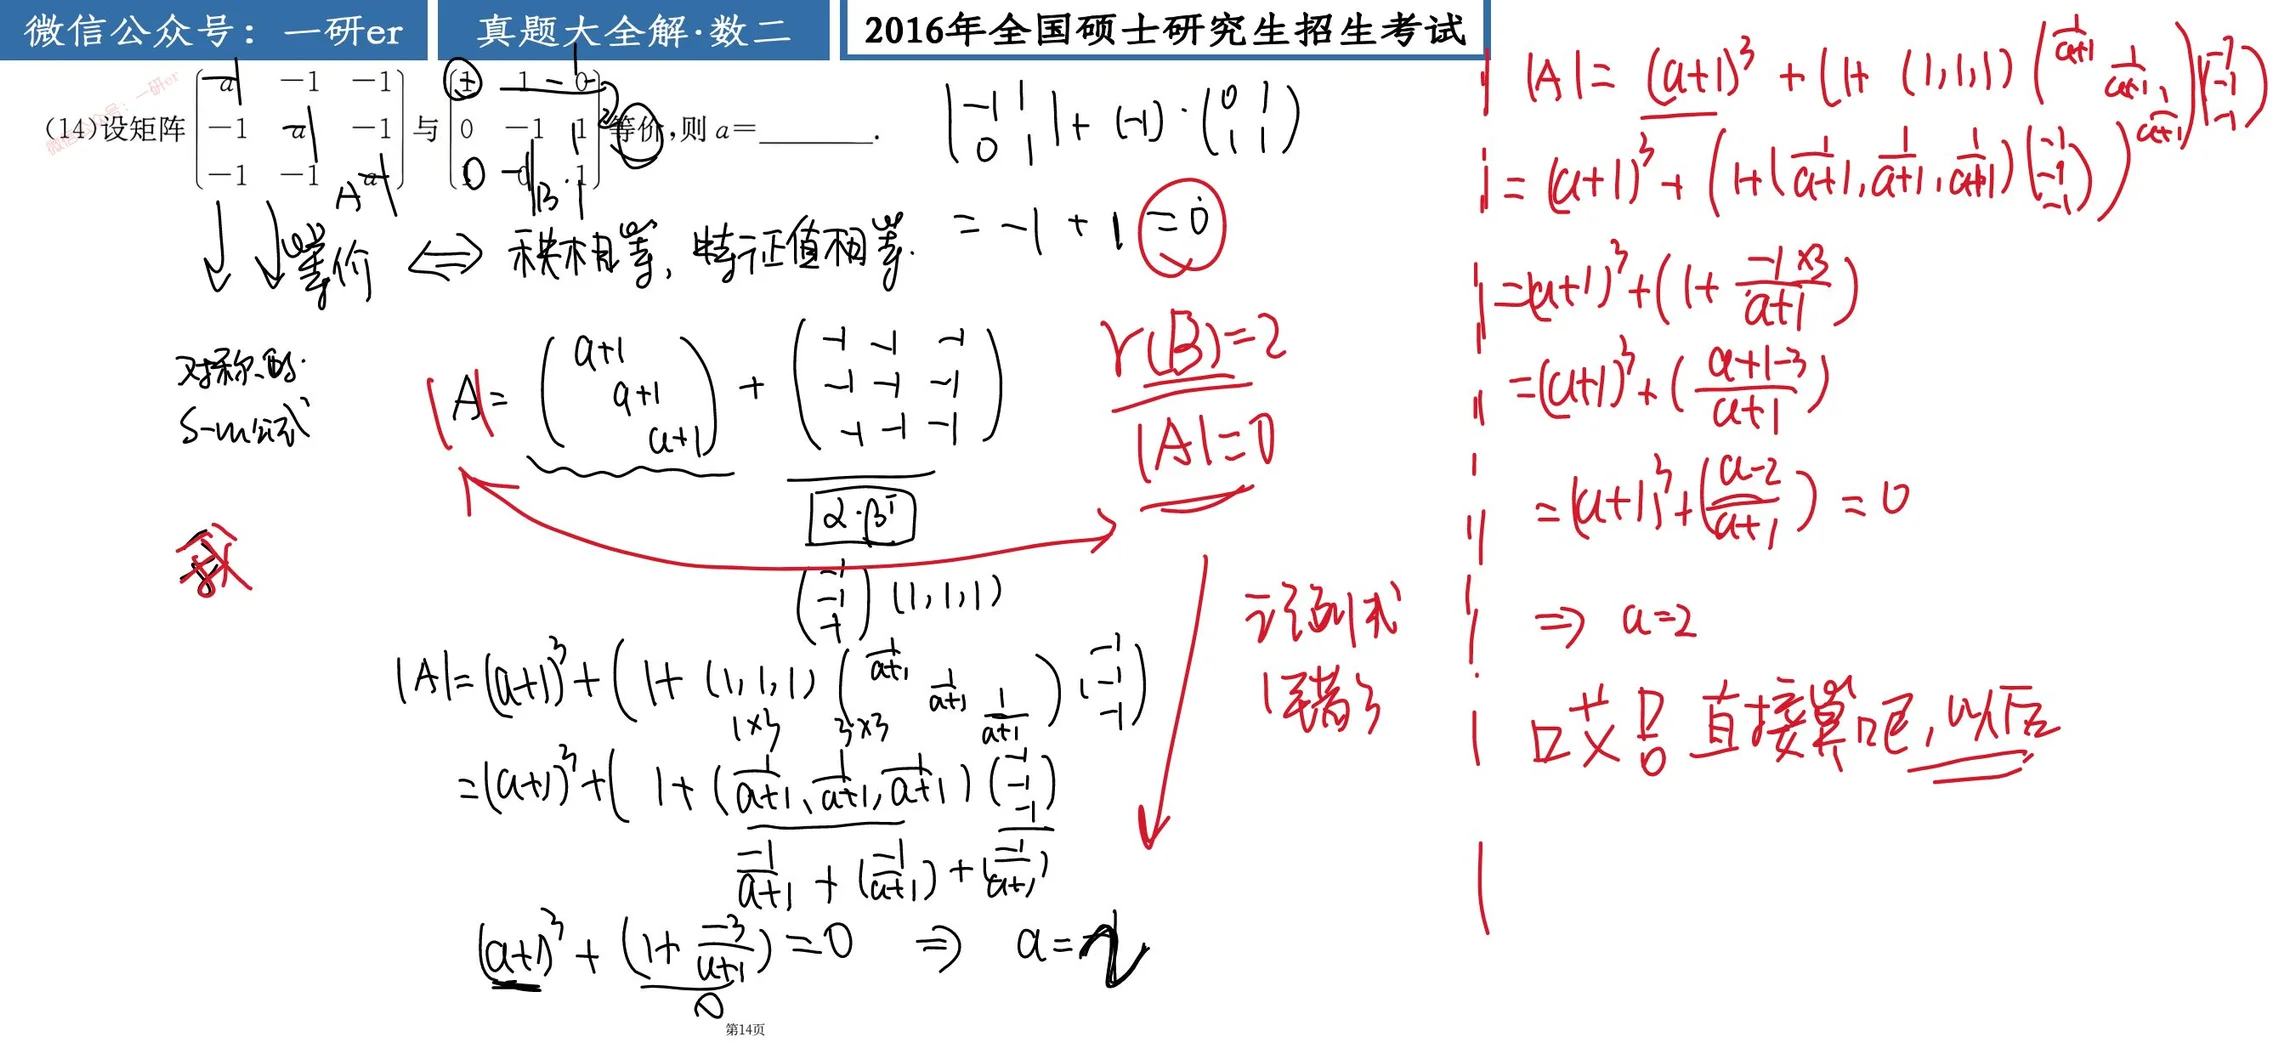 微信公众号：一研er
真题大全解·数二
2016年全国硕士研究生招生考试
微信公众号：一研er
(14)设矩阵 (a -1 -1; -1 a -1; -1 -1 a) 与 (1 1 0; 0 -1 1; 1 0 1) 等价,则 a=________.
A
B
0 -1 1
|-1 1; 0 1| + (-1)·(0 1; 1 1)
= -1 + 1 = 0
等价 ⇔ 秩相等, 特征值相等.
对称的.
S-m公式
|A|= (a+1 a+1 a+1) + (-1 -1 -1; -1 -1 -1; -1 -1 -1)
α·βᵀ
(-1; -1; -1) (1,1,1)
r(B)=2
|A|=0
|A|=(a+1)³+(1+(1,1,1)(1/(a+1) 1/(a+1) 1/(a+1))(-1; -1; -1)
1×3 3×3
=(a+1)³+(1+(1/(a+1), 1/(a+1), 1/(a+1))(-1; -1; -1)
-1/(a+1) + (-1/(a+1)) + (-1/(a+1))
(a+1)³+(1+ -3/(a+1))=0 ⇒ a=2
0
行列式
写错了
|A|= (a+1)³ + (1+ (1,1,1)(1/(a+1) 1/(a+1) 1/(a+1))(-1; -1; -1)
= (a+1)³+(1+(1/(a+1), 1/(a+1), 1/(a+1))(-1; -1; -1))
=(a+1)³+(1+ -1×3/(a+1))
=(a+1)³+((a+1-3)/(a+1))
=(a+1)³+((a-2)/(a+1)) = 0
⇒ a=2
直接算吧, 以后
第14页